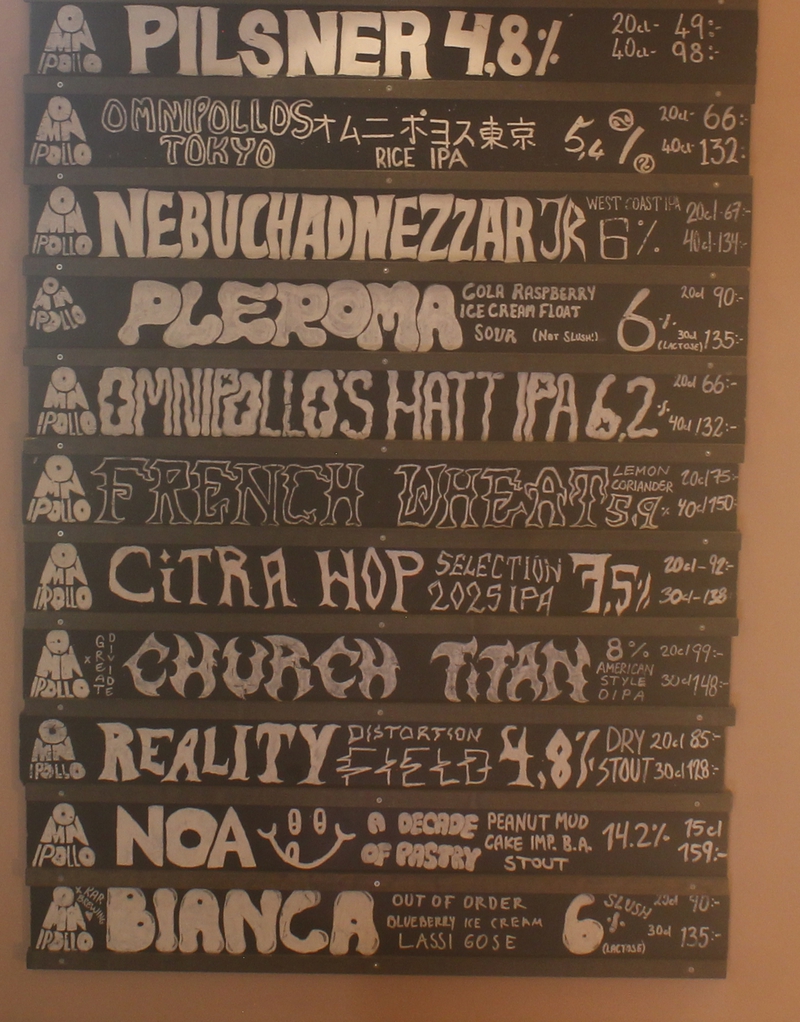 OMNIPOLLO PILSNER 4,8% 20cl- 49:-
40cl- 98:-
OMNIPOLLO OMNIPOLLOS オムニポヨス東京 5,4% 20cl- 66:-
TOKYO RICE IPA 40cl- 132:-
OMNIPOLLO NEBUCHADNEZZAR JR WEST COAST IPA 20cl-67:-
6% 40cl-134:-
OMNIPOLLO PLEROMA COLA RASPBERRY 6% 20cl 90:-
ICE CREAM FLOAT
SOUR (NOT SLUSH!) (LACTOSE) 30cl 135:-
OMNIPOLLO OMNIPOLLO'S HATT IPA 6,2% 20cl 66:-
40cl 132:-
OMNIPOLLO FRENCH WHEAT LEMON 20cl 75:-
CORIANDER
5,9% 40cl 150:-
OMNIPOLLO CiTRA HOP SELECTION 7,5% 20cl- 92:-
2025 IPA 30cl-138
OMNIPOLLO x GREAT DIVIDE CHURCH TITAN 8% 20cl 99:-
AMERICAN
STYLE 30cl 148:-
DIPA
OMNIPOLLO REALITY DISTORTION 4,8% DRY 20cl 85:-
FIELD STOUT 30cl 128:-
OMNIPOLLO NOA A DECADE PEANUT MUD 14.2% 15cl
OF PASTRY CAKE IMP. B.A. 159:-
STOUT
OMNIPOLLO x KAR BREWING BIANCA OUT OF ORDER 6% SLUSH 20cl 90:-
BLUEBERRY ICE CREAM
LASSI GOSE (LACTOSE) 30cl 135:-